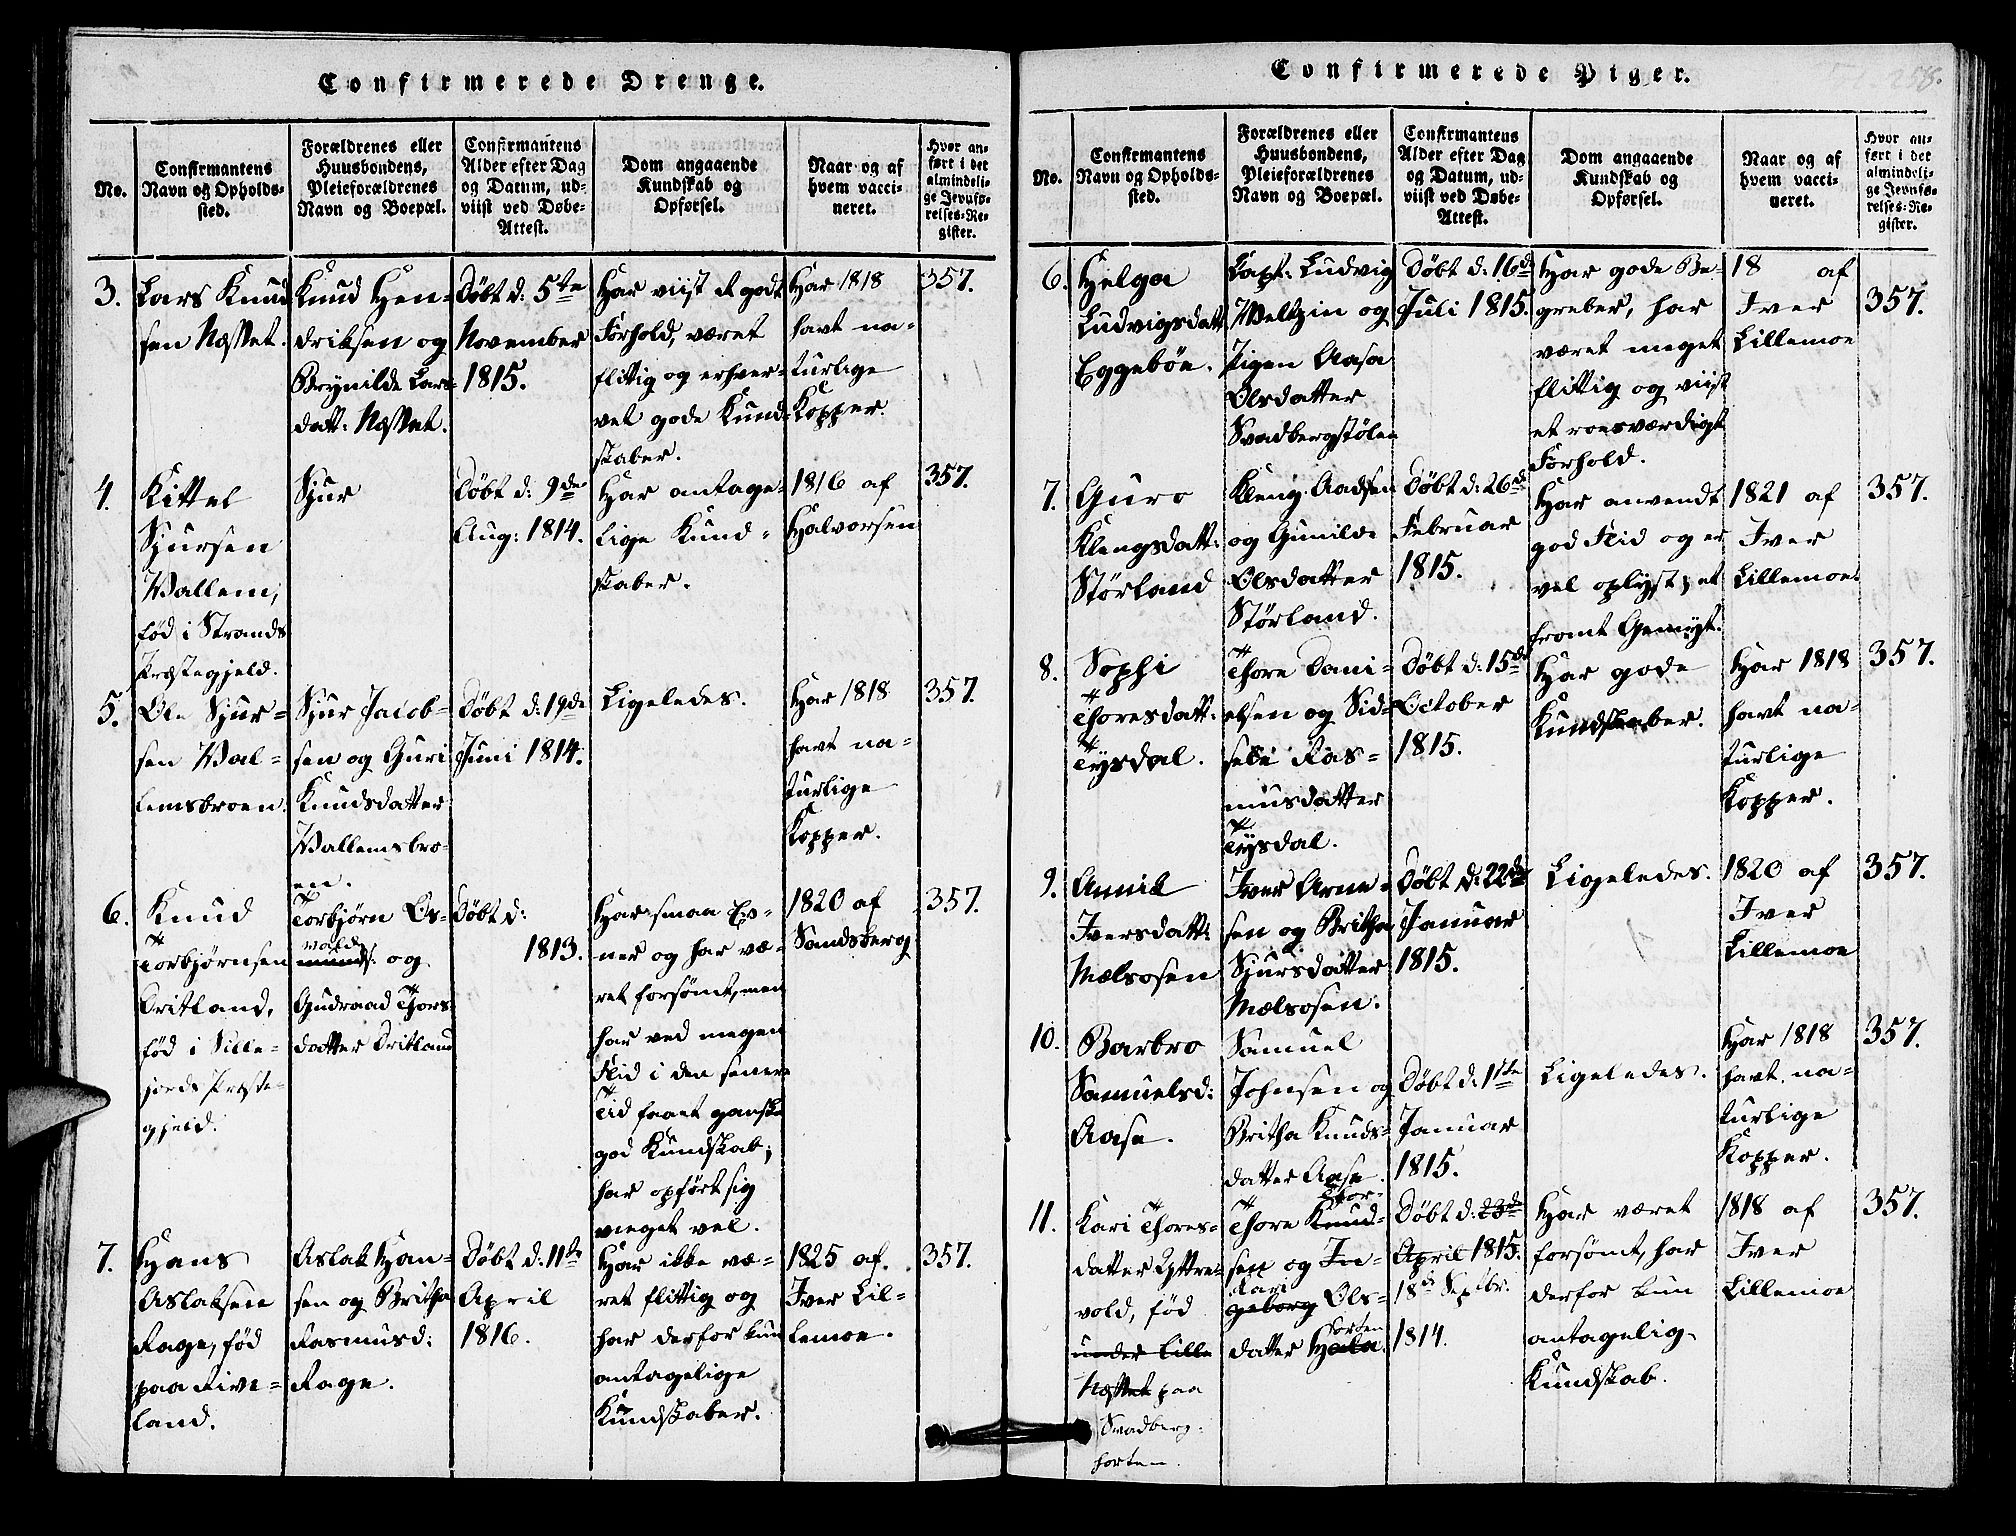 Confirmerede Drenge.
No.
Confirmantens
Navn og Opholds-
sted.
Forældrenes eller
Huusbondens,
Pleieforældrenes
Navn og Boepæl.
Confirmantens
Alder efter Dag
og Datum, ud-
viist ved Døbe-
Attest.
Dom angaaende
Kundskab og
Opførsel.
Naar og af
hvem vacci-
neret.
Hvor an-
ført i det
almindeli-
ge Jevnfø-
relses-Re-
gister.
3.
Lars Knud
sen Næsset.
Knud Hen-
driksen og
Brynilde Lars-
datt: Næsset.
Døbt d: 5te
November
1815.
Har viist et godt
Forhold, været
flittig og erhver-
vet gode Kund-
skaber.
Har 1818
havt na-
turlige
Kopper.
357.
4.
Kittel
Sjursen
Wallem,
fød i Strands
Præstegjeld.
Sjur
Døbt d: 9de
Aug: 1814.
Har antage-
lige Kund-
skaber.
1816 af
Halvorsen
357.
5.
Ole Sjur-
sen Wal-
lemsbroen.
Sjur Jacob-
sen og Guri
Knudsdatter
Wallemsbro-
en.
Døbt d: 19de
Juni 1814.
Ligeledes.
Har 1818
havt na-
turlige
Kopper.
357.
6.
Knud
Torbjørnsen
Dritland,
fød i Sille-
jords Præste-
gjeld.
Torbjørn Os-
vald
munds. og
Gudraad Thors-
datter Dritland
Døbt d:
1813.
Har smaa Ev-
ner og har væ-
ret forsømt, men
har ved megen
Flid i den senere
Tid faaet ganske
god Kundskab;
har opført sig
meget vel.
1820 af
Sandsberg
357.
7.
Hans
Aslaksen
Rage, fød
paa Five-
land.
Aslak Han-
sen og Britha
Rasmusd:
Rage.
Døbt d: 11te
April
1816.
Har ikke væ-
ret flittig og
har derfor kun
antagelige
Kundskaber.
1825 af
Iver Lil-
lemoe.
357.
Confirmerede Piger.
258.
No.
Confirmantens
Navn og Opholds-
sted.
Forældrenes eller
Huusbondens,
Pleieforældrenes
Navn og Boepæl.
Confirmantens
Alder efter Dag
og Datum, ud-
viist ved Døbe-
Attest.
Dom angaaende
Kundskab og
Opførsel.
Naar og af
hvem vacci-
neret.
Hvor an-
ført i det
almindeli-
ge Jevnfø-
relses-Re-
gister.
6.
Helga
Ludvigsdatt
Eggebøe.
Capt: Ludvig
Weltzin og
Pigen Aasa
Olsdatter
Svadbergstølen
Døbt d: 16de
Juli 1815.
Har gode Be-
greber, har
været meget
flittig og viist
et roesværdigt
Forhold.
18 af
Iver
Lillemoe
357.
7.
Guro
Klengsdatt:
Størland
Kleng Aadsen
og Gunilde
Olsdatter
Størland.
Døbt d: 26de
Februar
1815.
Har anvendt
god Flid og er
vel oplyst; et
fromt Gemyt.
1821 af
Iver
Lillemoe.
357.
8.
Sophi
Thoresdatt:
Tysdal.
Thore Dani-
elsen og Sid-
sele Ras-
musdatter
Tysdal.
Døbt d: 15de
October
1815.
Har gode
Kundskaber.
Har 1818
havt na-
turlige
Kopper.
357.
9.
Annik
Iversdatt:
Mælsosen
Iver Arne-
sen og Britha
Sjursdatter
Mælsosen.
Døbt d: 22de
Januar
1815.
Ligeledes.
1820 af
Iver
Lillemoe
357.
10.
Barbro
Samuelsd:
Aase.
Samuel
Johnsen og
Britha Knuds-
datter Aase.
Døbt d: 1ste
Januar
1815.
Ligeledes.
Har 1818
havt na-
turlige
Kopper.
357.
11.
Kari Thores-
datter Yttre-
vold, fød
under Lille
Næsset paa
Svadberg-
horten.
Thor-
Thore Knud-
sen og In-
Kari
geborg Ols-
horten
datter Hola.
Døbt d: 23de
April 1815.
18de Septbr.
1814.
Har været
forsømt, har
derfor kun
antagelig
Kundskab.
1818 af
Iver
Lillemoe
357.